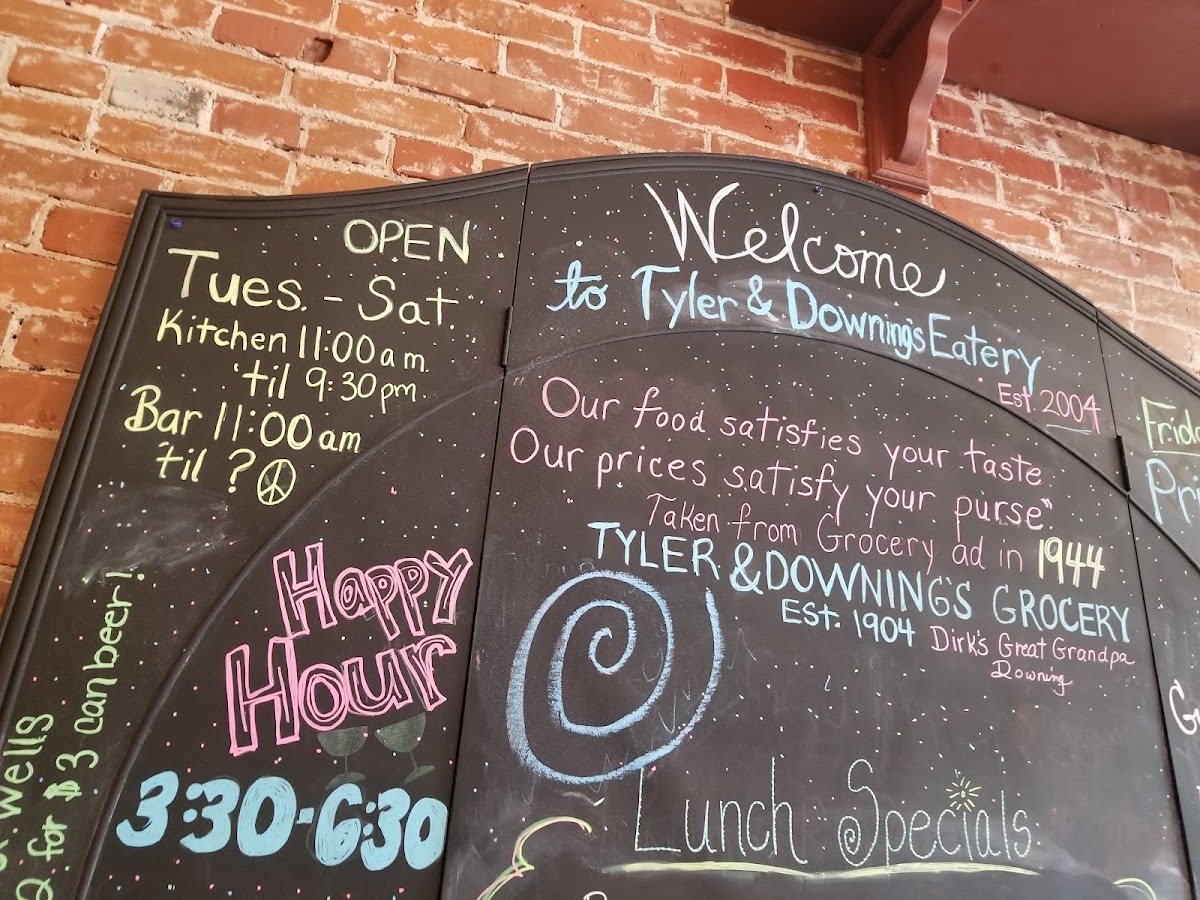 OPEN
Tues. - Sat.
Kitchen 11:00am.
'til 9:30pm.
Bar 11:00am
'til ?
Happy
Hour
3:30-6:30
wells
2 for $3 can beer!
Welcome
to Tyler & Downing's Eatery
Est. 2004
"Our food satisfies your taste
Our prices satisfy your purse"
Taken from Grocery ad in 1944
TYLER & DOWNING'S GROCERY
EST. 1904 Dirk's Great Grandpa
Downing
Lunch Specials